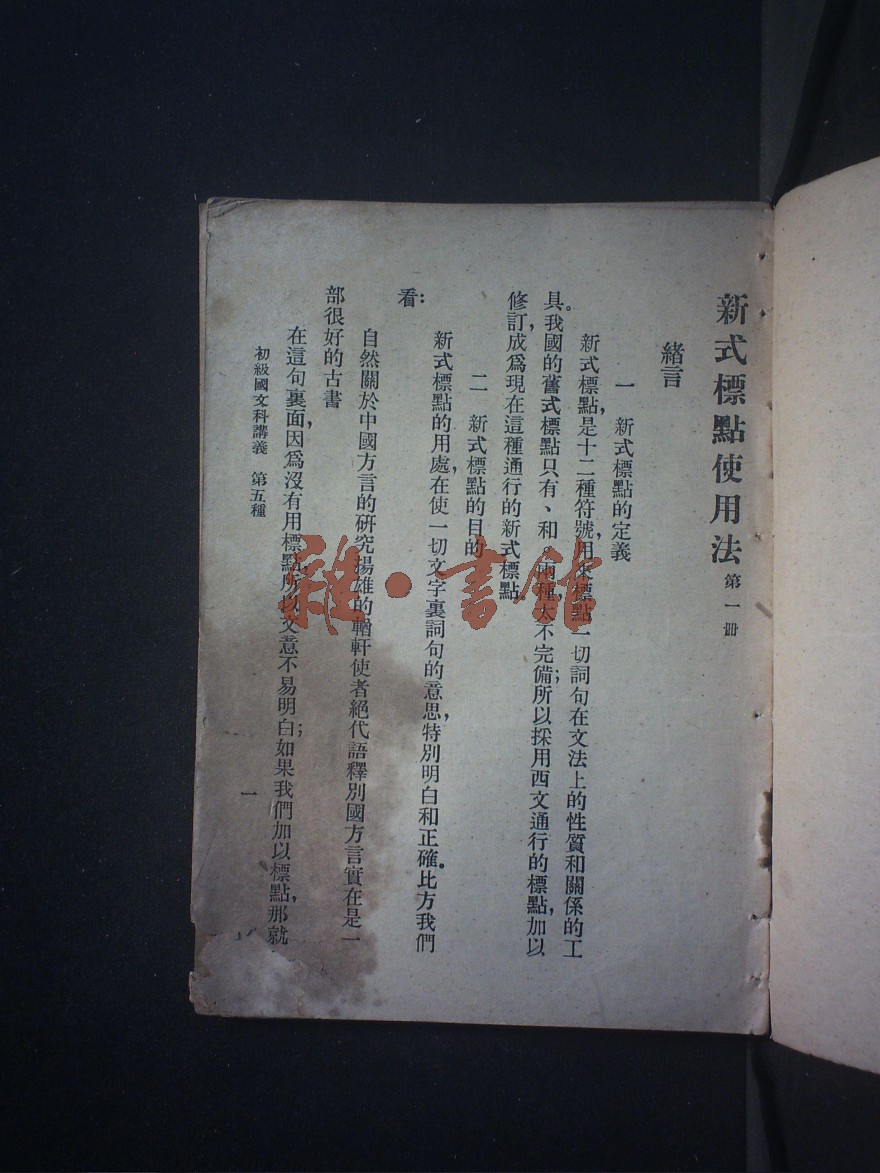 新式標點使用法 第一冊
緒言
一 新式標點的定義
新式標點,是十二種符號,用來標點一切詞句在文法上的性質和關係的工
具。我國的舊式標點只有、和。兩種,太不完備;所以採用西文通行的標點,加以
修訂,成爲現在這種通行的新式標點。
二 新式標點的目的
新式標點的用處,在使一切文字裏詞句的意思,特別明白和正確。比方我們
看:
自然關於中國方言的硏究揚雄的輶軒使者絕代語釋別國方言實在是一
部很好的古書
在這句裏面,因爲沒有用標點,所以文意不易明白;如果我們加以標點,那就
初級國文科講義 第五種
一
雜·書館